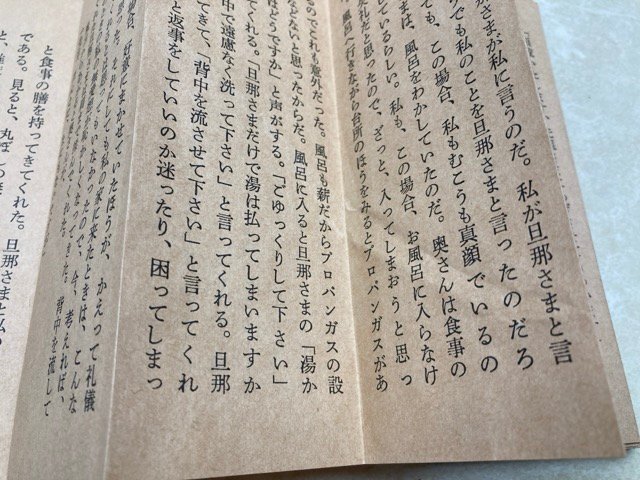 さまが私に言うのだ。私が旦那さまと言
うでも私のことを旦那さまと言ったのだろ
ても、この場合、私もむこうも真顔でいるの
まは、風呂をわかしていたのだ。奥さんは食事の
しているらしい。私も、この場合、お風呂に入らなけ
失礼だと思ったので、ざっと、入ってしまおうと思っ
風呂へ行きながら台所のほうをみるとプロパンガスがあ
るのでこれも意外だった。風呂も薪だからプロパンガスの設
ないと思ったからだ。風呂に入ると旦那さまの「湯か
はどうですか」と声がする。「ごゆっくりして下さい」
てくれる。「旦那さまだけで湯は払ってしまいますか
中で遠慮なく洗って下さい」と言ってくれる。旦那
てきて、背中を流させて下さい」と言ってくれ
と返事をしていいのか迷ったり、困ってしまっ
好意にまかせていたほうが、かえって礼儀
にしても私の家に来たときは、こんな
もいなかったので、今、考えれば、
しくなってきた。背中を流して
くれた。
と食事の膳を持ってきてくれた。
である。見ると、丸ぼ
旦那さまと私の